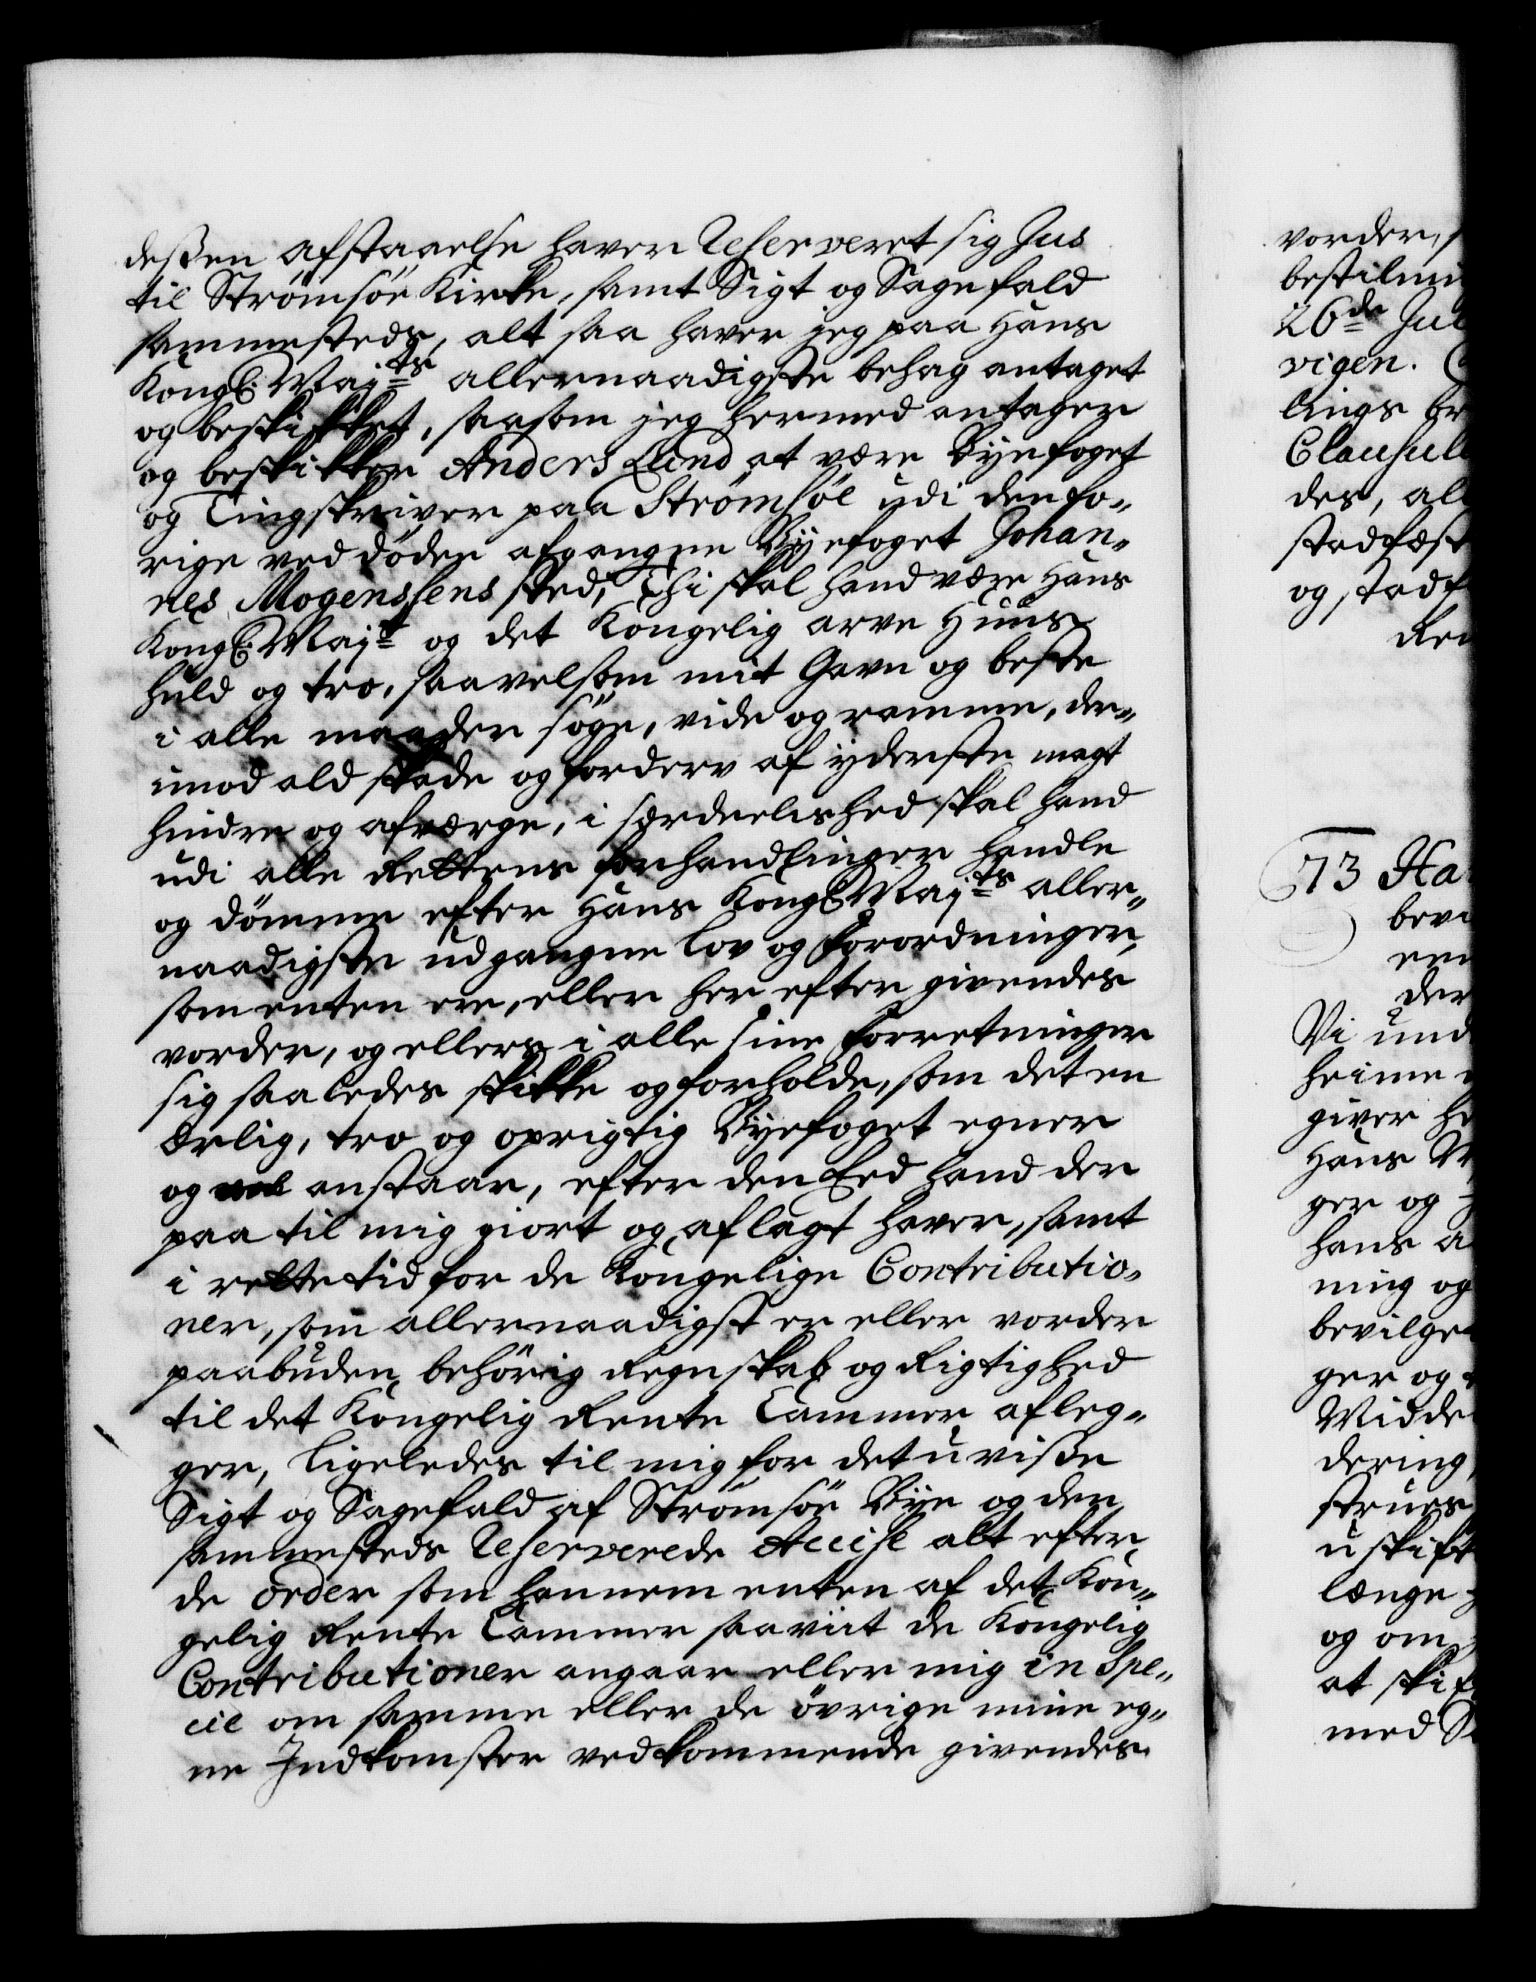 deßen afstaaelse haver Reserveret sig Jus
til Strømsøe Kirke, samt Sigt og Sagefald
sammesteds, alt saa haver jeg paa Hans
Kongl: Maj:ts allernaadigste behag antaget
og beskikket, saasom jeg hermed antager
og beskikker Anders Lund at være Byefoget
og Tingskriver paa Strømsøe udi den fo-
rige ved døden afgangne Byefoget Johan-
nes Mogensens sted, Thi skal hand være Hans
Kongl: Maj:t og det Kongelig arve Huus
huld og tro, saavelsom mit Gavn og beste
i alle maader søge, vide og ramme, der-
imod ald skade og forderv af yderste magt
hindre og afværge, i særdeelished skal hand
udi alle Rettens forhandlinger handle
og dømme efter Hans Kongl: Maj:ts aller-
naadigste udgangne lov og forordninger,
som enten ere, eller her efter givendes
vorder, og ellers i alle sine forretninger
sig saaledes skikke og forholde, som det en
ærlig, tro og oprigtig Byefoget egner
og vel anstaar, efter den Eed hand der
paa til mig giort og aflagt haver, samt
i rette tid for de Kongelige Contributio-
ner, som allernaadigst er eller vorder
paabuden, behørig Regnskab og Rigtighed
til det Kongelig Rente Cammer afleg-
ger, ligeledes til mig for det uvisse
Sigt og Sagefald af Strømsøe Bye og den
sammesteds Reserverede Accise alt efter
de order som hannem enten af det Kon-
gelig Rente Cammer saaviit de Kongelig
Contributioner angaar eller mig in Spe-
cie om samme eller de øvrige mine eg-
ne Indkomster vedkommende givendes
vorder,
26de Jul
vigen.
lings
Clausul
des, al
stadfæst
og stadf
73 Ha
bevi
een
der
Vi und
heime
giver he
Hans
ger og
hans a
ning og
bevilge
ger og
Widde
dering,
strues
uskift
længe
og om
at skif
med